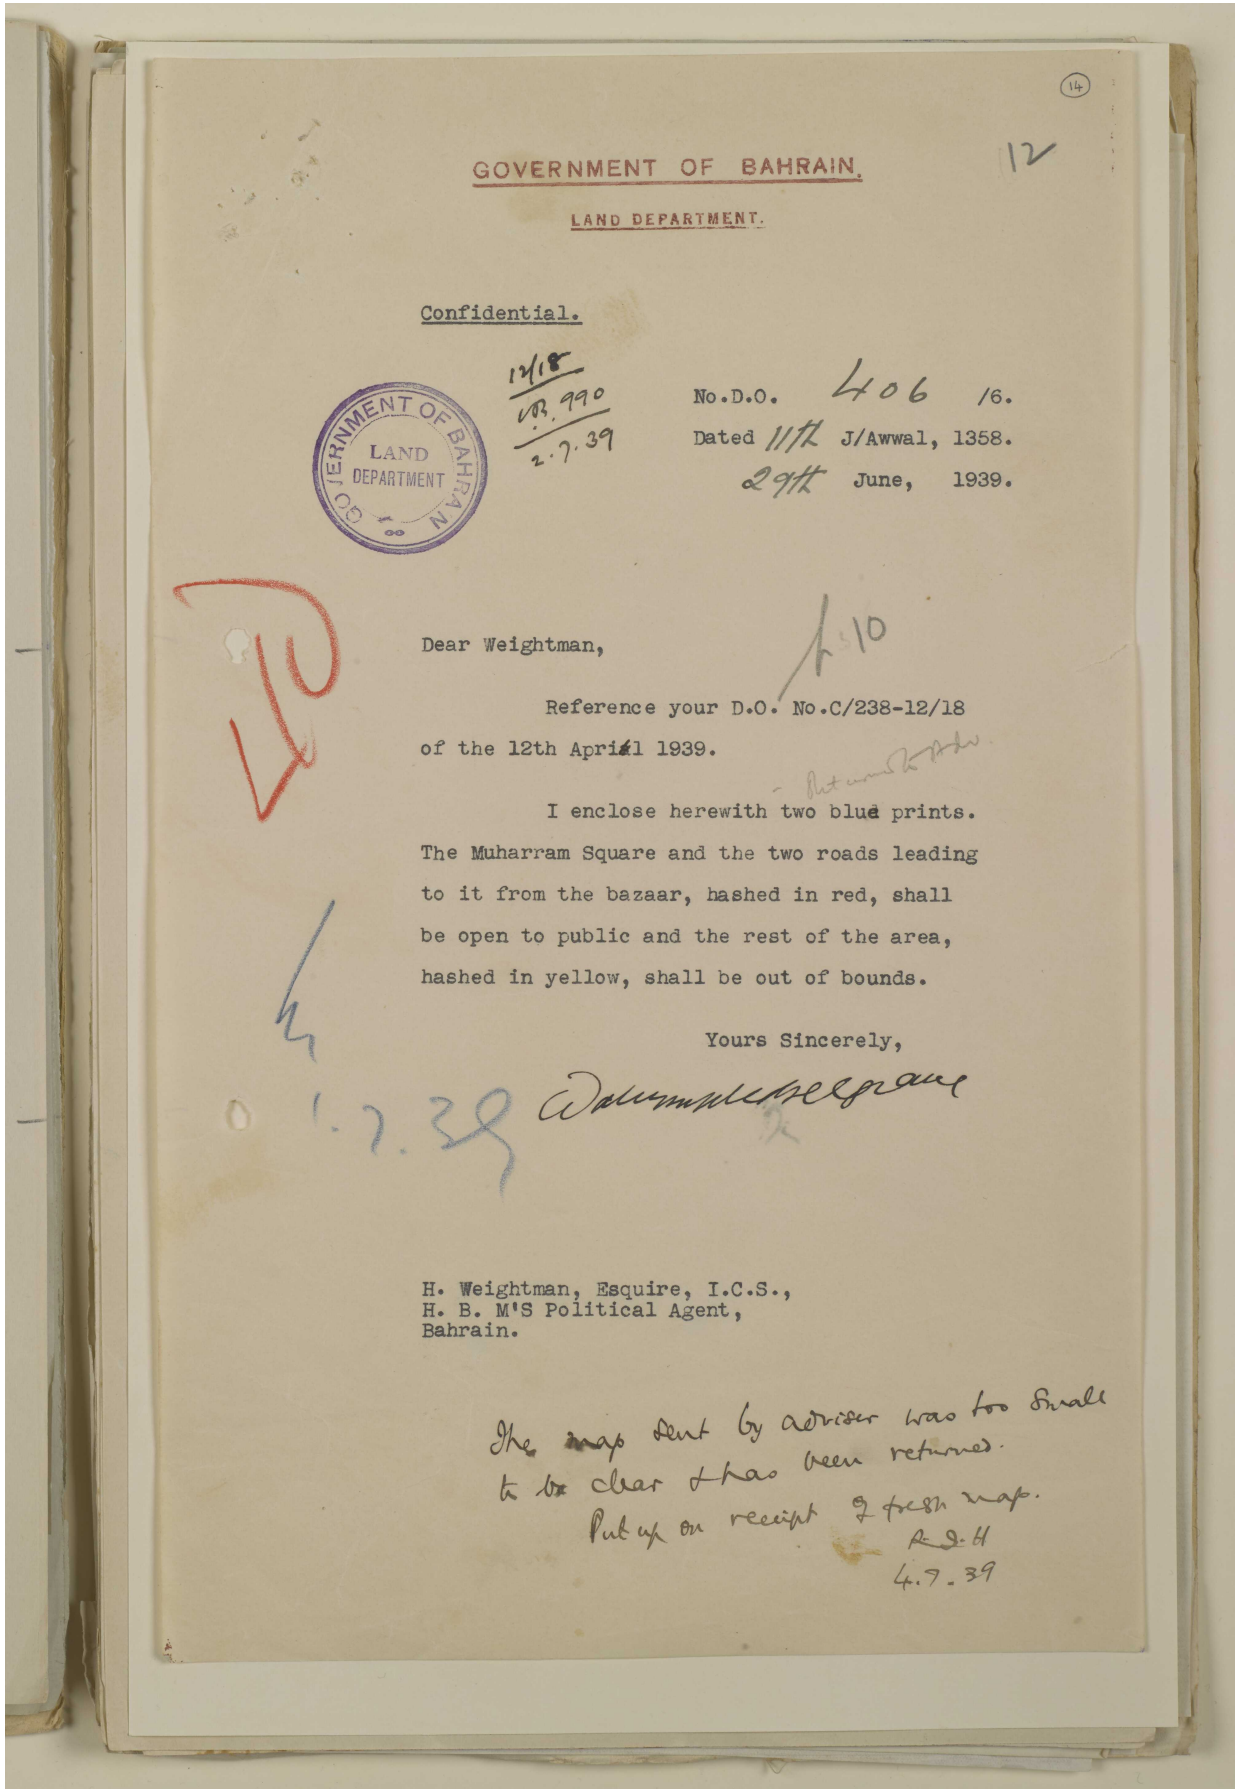 14
12
GOVERNMENT OF BAHRAIN.
LAND DEPARTMENT.
Confidential.
12/18
990
2.7.39
No.D.O. 406 /6.
Dated 11th J/Awwal, 1358.
29th June, 1939.
GOVERNMENT OF BAHRAIN
LAND
DEPARTMENT
10
Dear Weightman,
Reference your D.O. No.C/238-12/18
of the 12th April 1939.
Returned to Adv
I enclose herewith two blue prints.
The Muharram Square and the two roads leading
to it from the bazaar, hashed in red, shall
be open to public and the rest of the area,
hashed in yellow, shall be out of bounds.
Yours Sincerely,
1.7.39
H. Weightman, Esquire, I.C.S.,
H. B. M'S Political Agent,
Bahrain.
The map sent by adviser was too small
to be clear & has been returned.
Put up on receipt of fresh map.
4.7.39